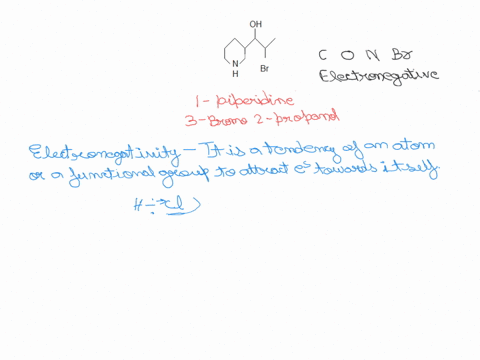 OH
N
H
Br
C O N Br
Electronegative
1- piperidine
3-Bromo 2-propanol
Electronegativity - It is a tendency of an atom
or a functional group to attract e's towards itself.
H Cl